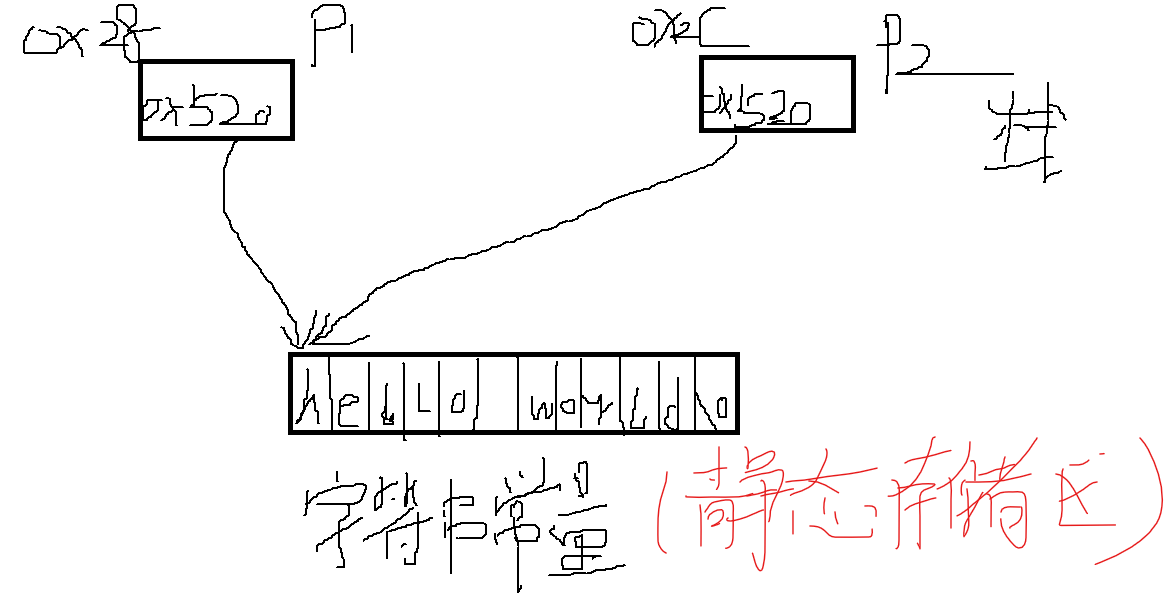 0x28 P1 0x2C P2
0x520 0x520
栈
hello world\0
字符串常量 (静态存储区)